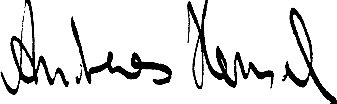 Andreas Hensel